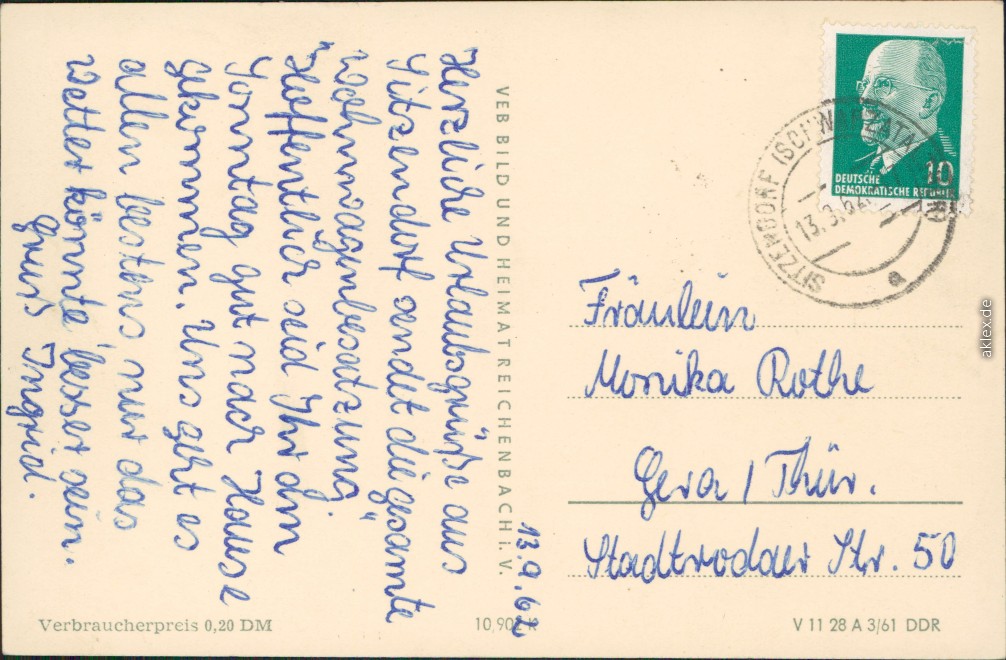 13.9.62
Herzliche Urlaubsgrüße aus
Sitzendorf sendet die gesamte
"Wohnwagenbesatzung."
Hoffentlich seid Ihr am
Sonntag gut nach Hause
gekommen. Uns geht es
allen bestens nur das
Wetter könnte besser sein.
Gruß Ingrid.
VEB BILD UND HEIMAT REICHENBACH i. V.
10
DEUTSCHE
DEMOKRATISCHE REPUBLIK
SITZENDORF (SCHWARZATAL)
a
Fräulein
Monika Rothe
Gera / Thür.
Stadtrodaer Str. 50
Verbraucherpreis 0,20 DM
V 11 28 A 3/61 DDR
aklex.de